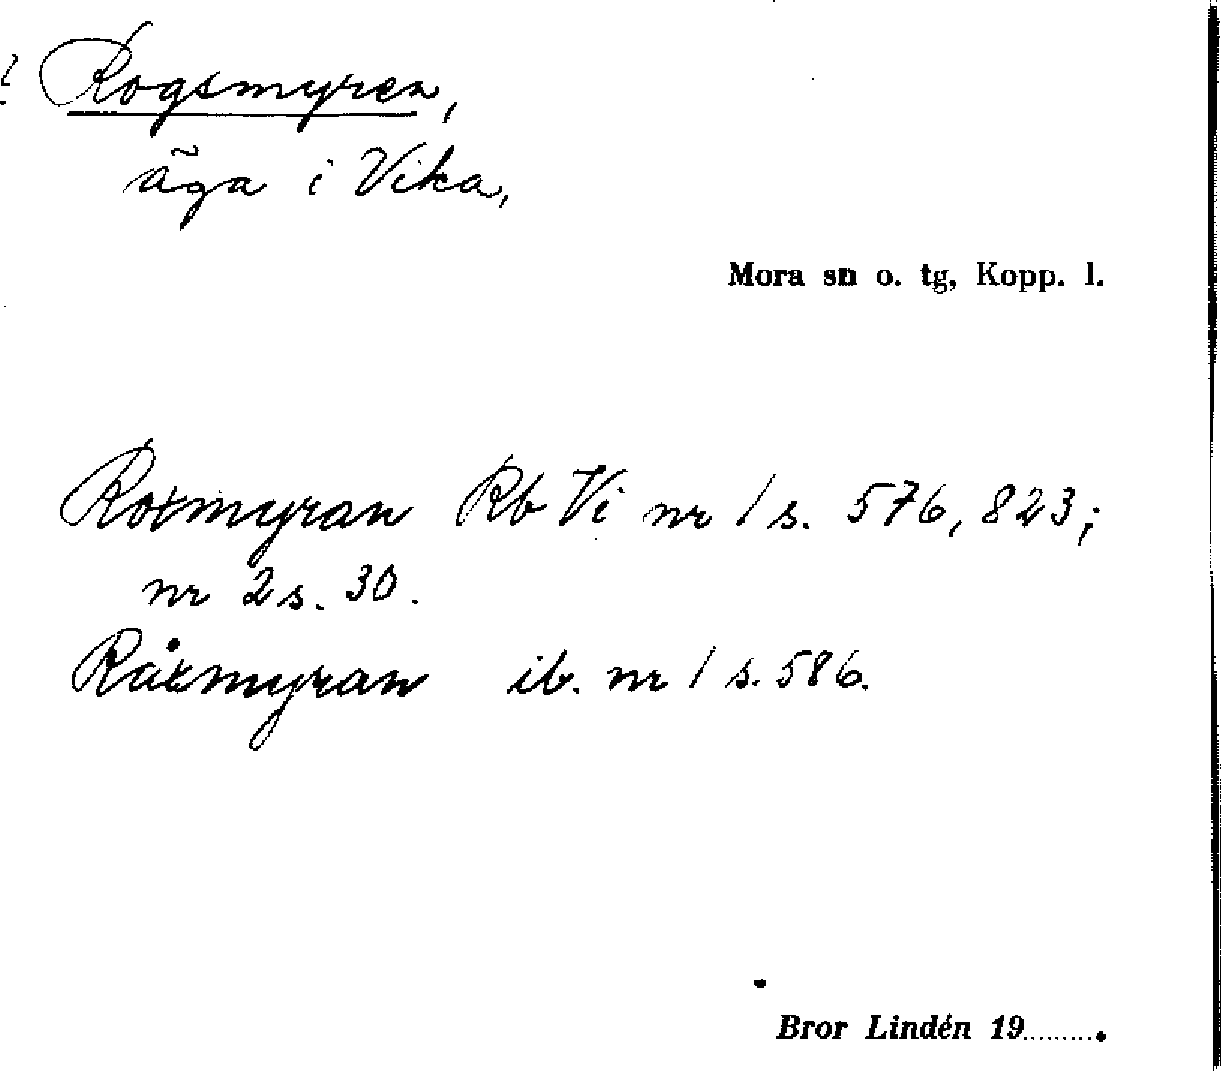 ? Rogsmyren,
äga i Vika,
Mora sn o. tg, Kopp. l.
Roxmyran Rb Vi nr 1 s. 576, 823;
nr 2 s. 30.
Råxmyran ib. nr 1 s. 586.
Bror Lindén 19.........